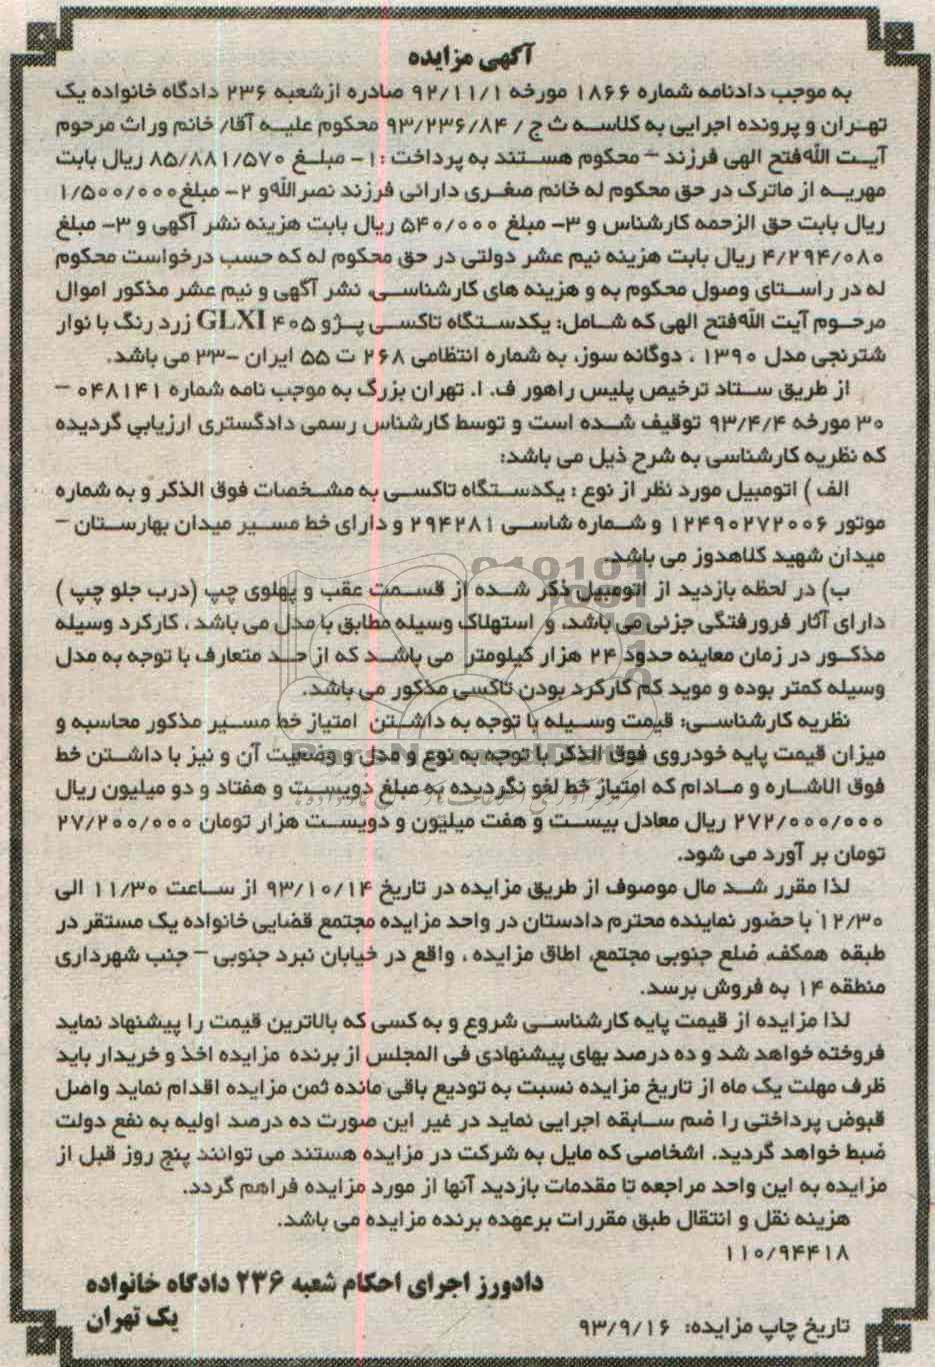 آگهی مزایده
به موجب دادنامه شماره ۱۸۶۶ مورخه ۹۲/۱۱/۱ صادره ازشعبه ۲۳۶ دادگاه خانواده یک
تهـران و پرونده اجرایی به کلاسه ث ج / ۹۳/۲۳۶/۸۴ محکوم علیه آقا/ خانم وراث مرحوم
آیـت الله فتح الهی فرزند – محکوم هستند به پرداخت :۱- مبلـغ ۸۵/۸۸۱/۵۷۰ ریال بابت
مهریـه از ماترک در حق محکوم له خانم صغری دارائی فرزند نصرالله و ۲- مبلغ ۱/۵۰۰/۰۰۰
ریال بابت حق الزحمه کارشناس و ۳- مبلغ ۵۴۰/۰۰۰ ریال بابت هزینه نشر آگهی و ۳- مبلغ
۴/۲۹۴/۰۸۰ ریال بابت هزینه نیم عشر دولتی در حق محکوم له که حسب درخواست محکوم
له در راسـتای وصول محکوم به و هزینه های کارشناسـی، نشر آگهی و نیم عشر مذکور اموال
مرحـوم آیت الله فتح الهی که شـامل: یکدسـتگاه تاکسـی پـژو ۴۰۵ GLXI زرد رنگ با نوار
شترنجی مدل ۱۳۹۰ ، دوگانه سوز، به شماره انتظامی ۲۶۸ ت ۵۵ ایران –۳۳ می باشد.
از طریق سـتاد ترخیص پلیس راهور ف. ا. تهران بزرگ به موجب نامه شماره ۰۴۸۱۴۱ –
۳۰ مورخه ۹۳/۴/۴ توقیف شـده است و توسط کارشناس رسمی دادگستری ارزیابی گردیده
که نظریه کارشناسی به شرح ذیل می باشد:
الف ) اتومبیل مورد نظر از نوع : یکدسـتگاه تاکسـی به مشـخصات فوق الذکر و به شماره
موتور ۱۲۴۹۰۲۷۲۰۰۶ و شـماره شاسـی ۲۹۴۲۸۱ و دارای خط مسـیر میدان بهارسـتان –
میدان شهید کلاهدوز می باشد.
ب) در لحظه بازدید از اتومبیل ذکر شـده از قسـمت عقب و پهلوی چپ (درب جلو چپ )
دارای آثار فرورفتگی جزئی می باشد، و استهلاک وسیله مطابق با مدل می باشد ، کارکرد وسیله
مذکـور در زمان معاینه حدود ۲۴ هزار کیلومتر می باشـد که از حـد متعارف با توجه به مدل
وسیله کمتر بوده و موید کم کارکرد بودن تاکسی مذکور می باشد.
نظریه کارشناسـی: قیمت وسـیله با توجه به داشـتن امتیاز خط مسـیر مذکور محاسبه و
میزان قیمت پایه خودروی فوق الذکر با توجه به نوع و مدل و وضعیت آن و نیز با داشـتن خط
فوق الاشـاره و مـادام که امتیاز خط لغو نگردیده به مبلغ دویسـت و هفتاد و دو میلیون ریال
۲۷۲/۰۰۰/۰۰۰ ریال معادل بیسـت و هفت میلیون و دویسـت هزار تومان ۲۷/۲۰۰/۰۰۰
تومان بر آورد می شود.
لذا مقرر شـد مال موصوف از طریق مزایده در تاریخ ۹۳/۱۰/۱۴ از سـاعت ۱۱/۳۰ الی
۱۲/۳۰ با حضور نماینده محترم دادستان در واحد مزایده مجتمع قضایی خانواده یک مستقر در
طبقه همکف، ضلع جنوبی مجتمع، اطاق مزایده ، واقع در خیابان نبرد جنوبی – جنب شهرداری
منطقه ۱۴ به فروش برسد.
لذا مزایده از قیمت پایه کارشناسـی شروع و به کسی که بالاترین قیمت را پیشنهاد نماید
فروخته خواهد شد و ده درصد بهای پیشنهادی فی المجلس از برنده مزایده اخذ و خریدار باید
ظرف مهلت یک ماه از تاریخ مزایده نسبت به تودیع باقی مانده ثمن مزایده اقدام نماید واصل
قبوض پرداختی را ضم سـابقه اجرایی نماید در غیر این صورت ده درصد اولیه به نفع دولت
ضبط خواهد گردید. اشخاصی که مایل به شرکت در مزایده هستند می توانند پنج روز قبل از
مزایده به این واحد مراجعه تا مقدمات بازدید آنها از مورد مزایده فراهم گردد.
هزینه نقل و انتقال طبق مقررات برعهده برنده مزایده می باشد.
۱۱۰/۹۴۴۱۸
دادورز اجرای احکام شعبه ۲۳۶ دادگاه خانواده
یک تهران
تاریخ چاپ مزایده: ۹۳/۹/۱۶